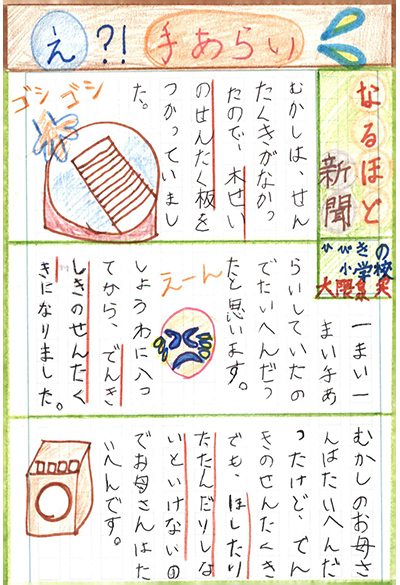 え?! 手あらい
なるほど
新聞
ひびきの
小学校
大隈
むかしは、せん
たくきがなかっ
たので、木せい
のせんたく板を
つかっていまし
た。
ゴシゴシ
一まい一
まい手あ
らいしていたの
でたいへんだっ
たと思います。
えーん
しょうわに入っ
てから、でんき
しきのせんたく
きになりました。
むかしのお母さ
んはたいへんだ
ったけど、でん
きのせんたくき
でも、ほしたり
たたんだりしな
いといけないの
でお母さんはた
いへんです。